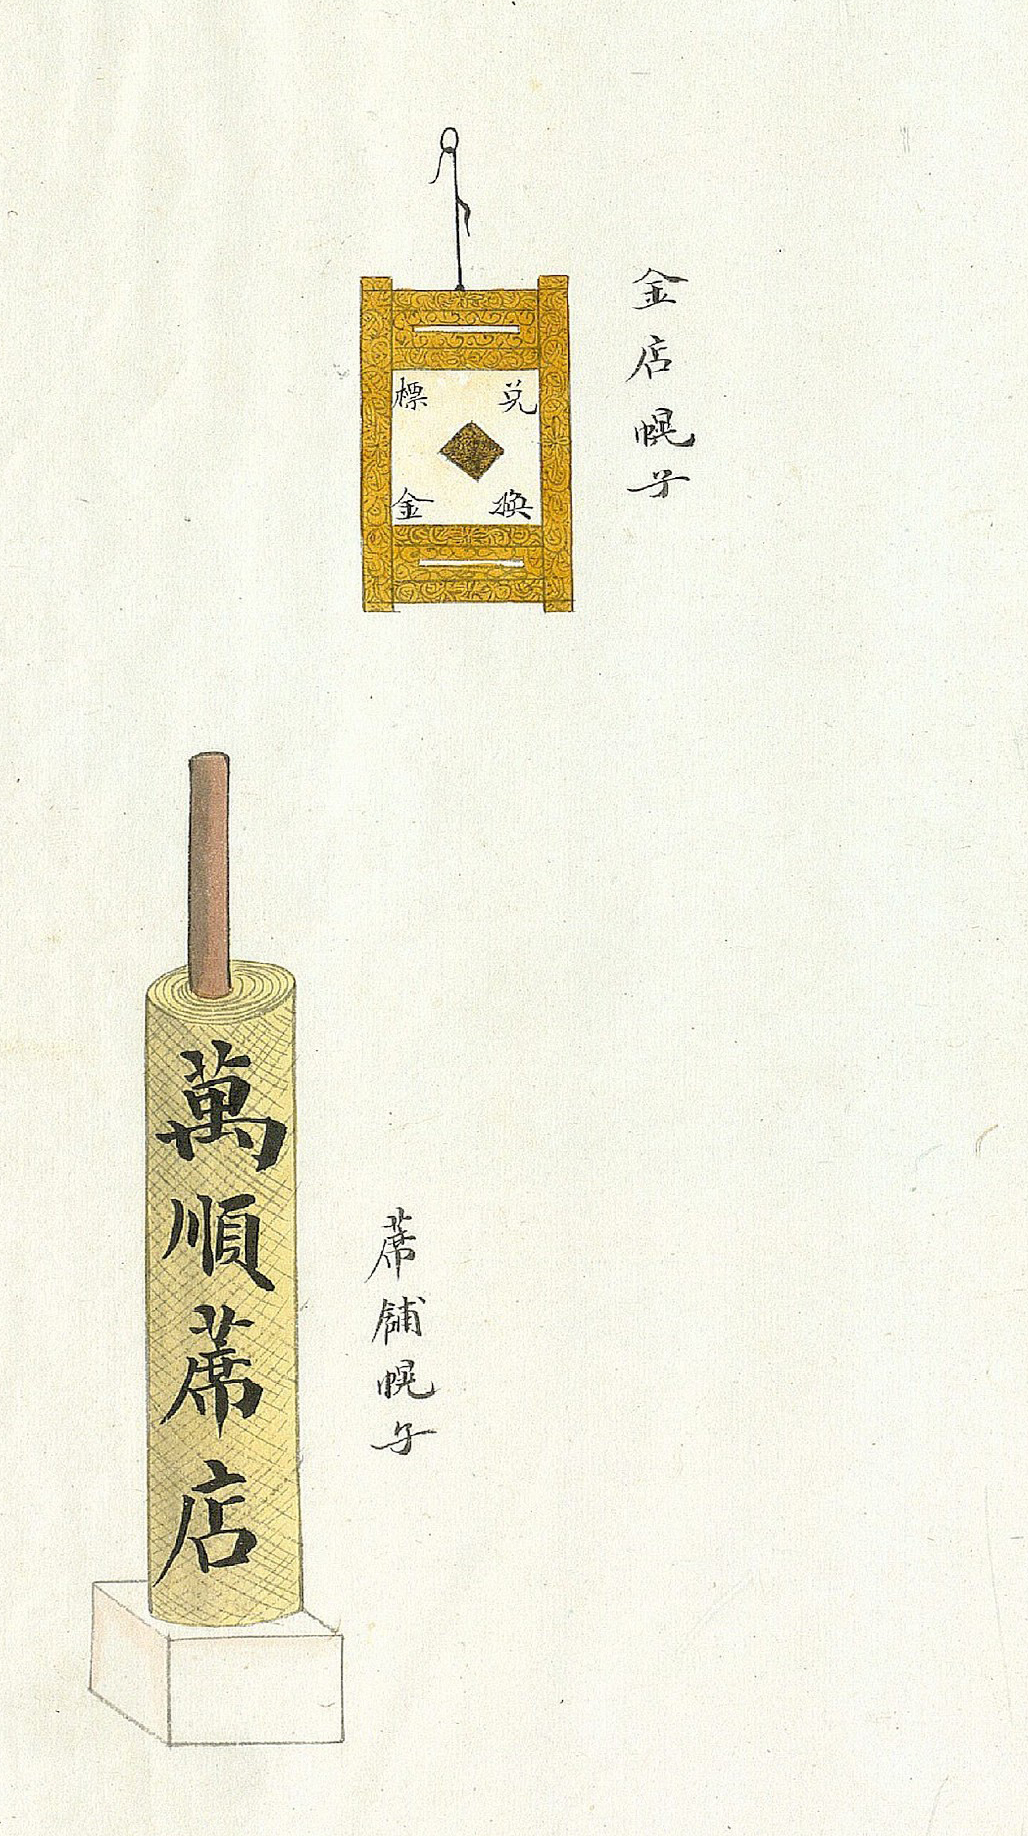 金店幌子
兑換
標金
蓆舖幌子
萬順蓆店